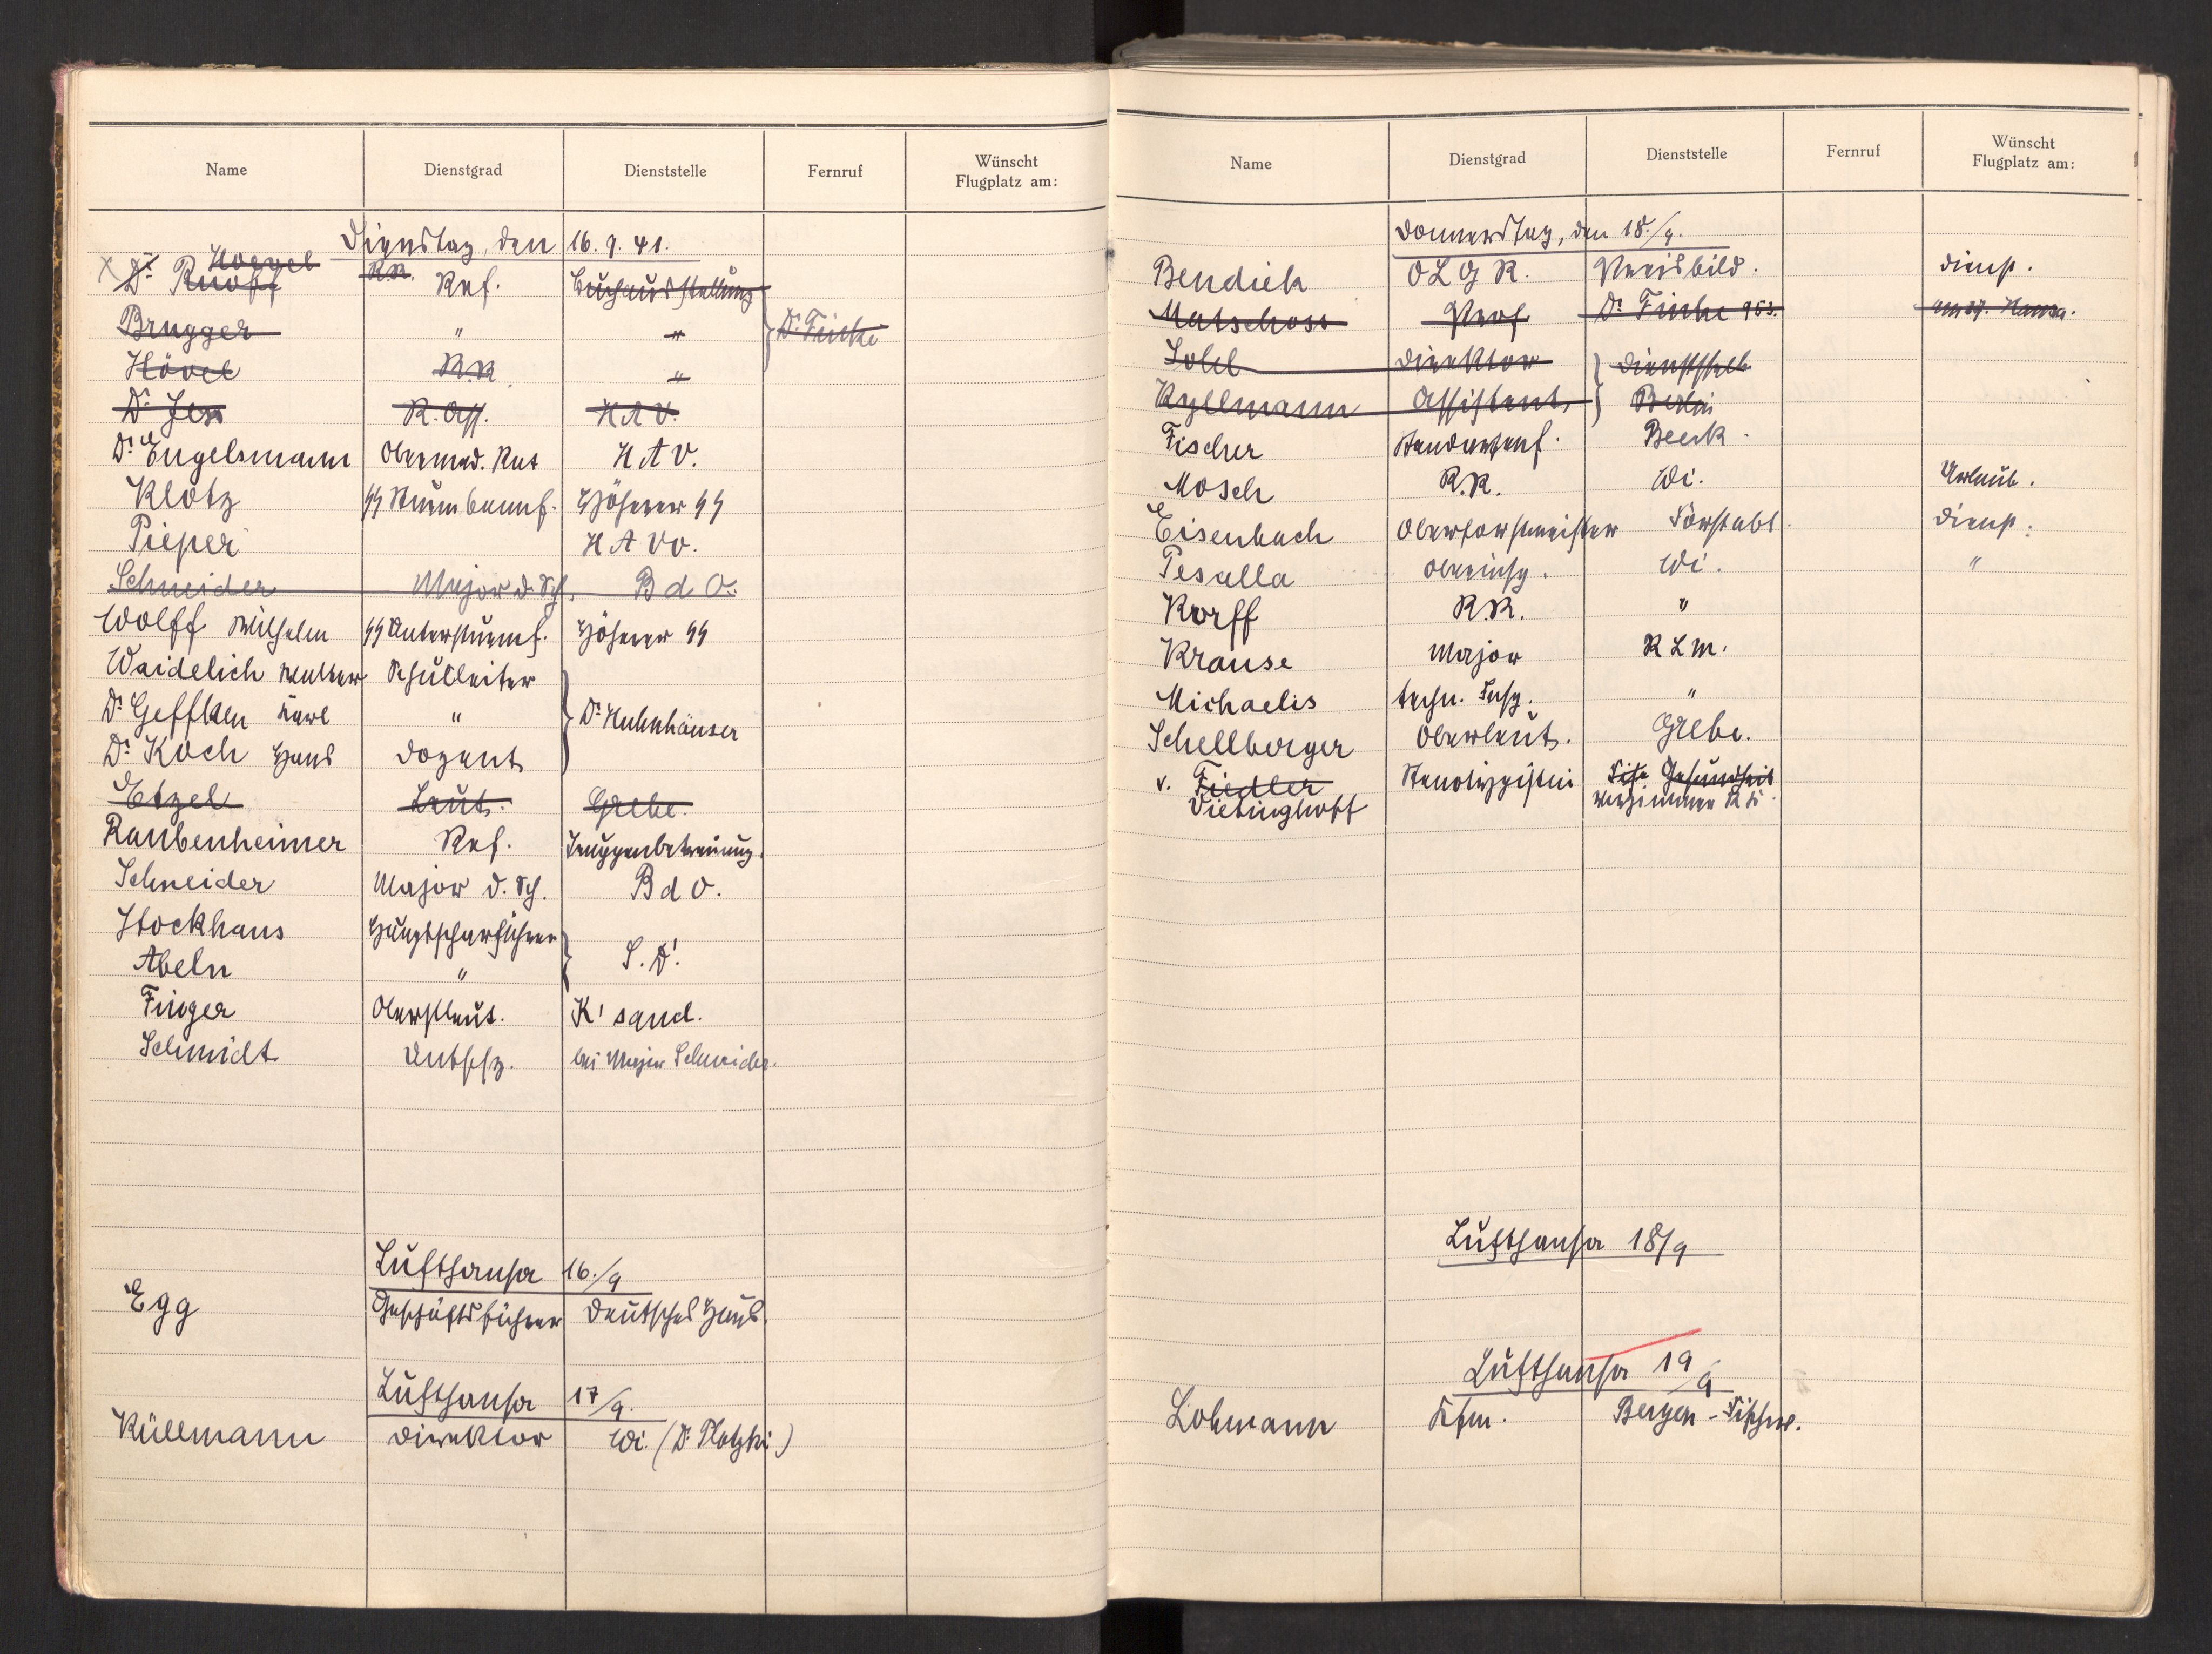 Name Dienstgrad Dienststelle Fernruf Wünscht Flugplatz am:
Dienstag, den 16.9.41.
Hoevel
x Dr. Knopf R.R. Ref. Buchausstellung
Brugger " " } Dr. Finke
Hövel R.R. "
Dr. Jess R. Ass. H A V.
Dr. Engelsmann Obermed. Rat H A V.
Klotz SS Sturmbannf. Höherer SS
Pieper H A Vo.
Schneider Major d. Sch. B d O.
Wolff Wilhelm SS Untersturmf. Höherer SS
Waidelich Walter Schulleiter
Dr. Geffken Karl " } Dr. Huhnhäuser
Dr. Koch Hans Dozent
Etzel Leut. Grebe.
Raubenheimer Ref. Truppenbetreuung.
Schneider Major d. Sch. B d O.
Stockhaus Hauptscharführer
Abeln " } S. D.
Finger Oberstleut. K'sand.
Schmidt bei Major Schneider.
Lufthansa 16./9
Egg Geschäftsführer Deutsches Haus.
Lufthansa 17/9.
Küllmann Direktor Wi. (Dr. Plotzki)
Name Dienstgrad Dienststelle Fernruf Wünscht Flugplatz am:
Donnerstag, den 18./9.
Bendick O L G R. Preisbild. dienst.
Matschoss Prof. Dr. Finke 953.
Direktor } Dienststelle
Kyllmann Assistent, Berlin
Fischer Standartenf. Beeck.
Mosch R.R. Wi. Urlaub.
Eisenbach Oberforstmeister Forstabt. dienst.
Pesalla Oberinsp. Wi. "
Korff R.R. "
Krause Major R L M.
Michaelis techn. Insp. "
Schellberger Oberleut. Grebe.
v. Fiedler Stenotypistin Gesundheit
Vietinghoff
Lufthansa 18/9
Lufthansa 19/9
Lohmann Kfm. Bergen - Fischw.